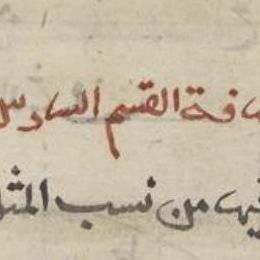 افة القسم السادس
فيها من نسب المثل